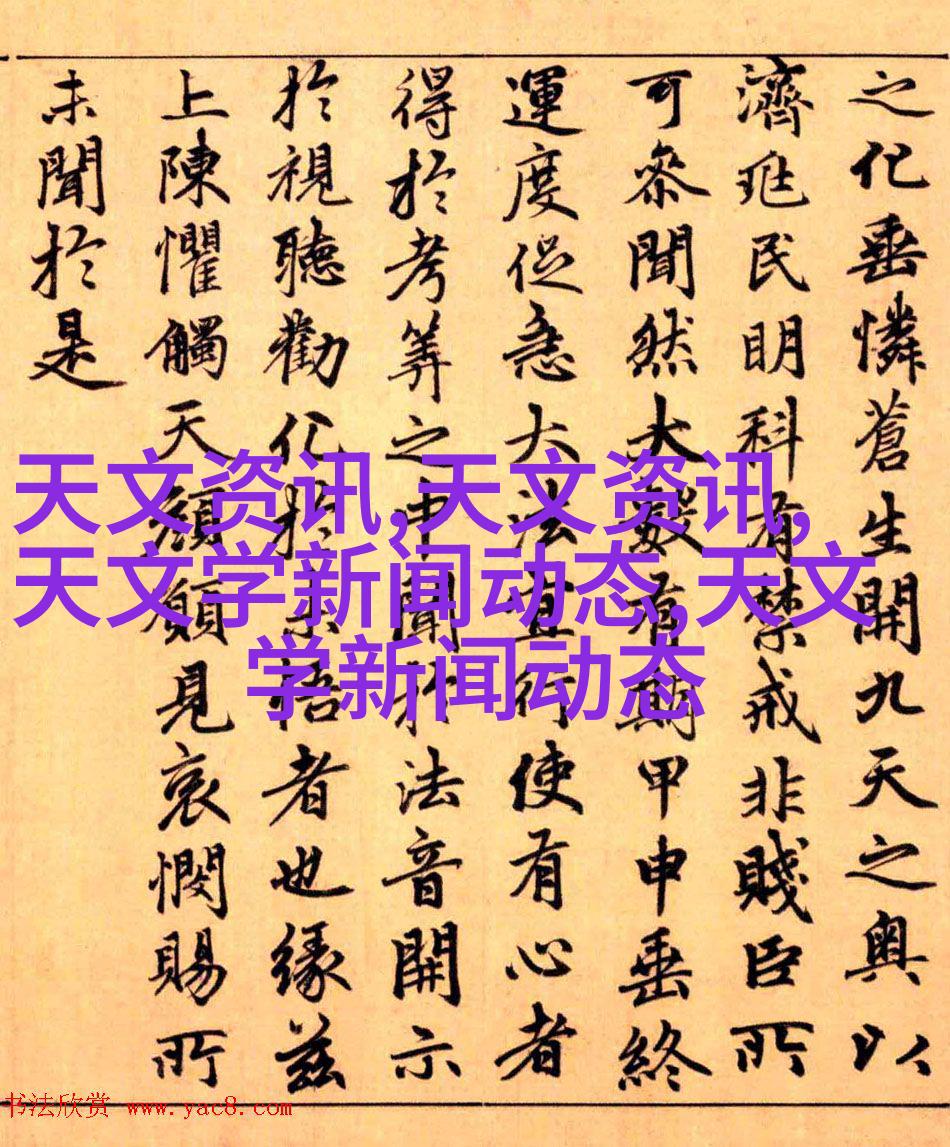 之化垂憐蒼生開九天之奧以
濟兆民明科有禁戒非賤臣所
可参聞然大數有期甲申垂終
運度促急大法宜行使有心者
得於考筭之中聞於法音開示
於視聽勸化於未悟者也緣茲
上陳懼觸天顏願見哀憫賜所
未聞於是
天文资讯,天文资讯,
天文学新闻动态,天文
学新闻动态
书法欣赏 www.yac8.com